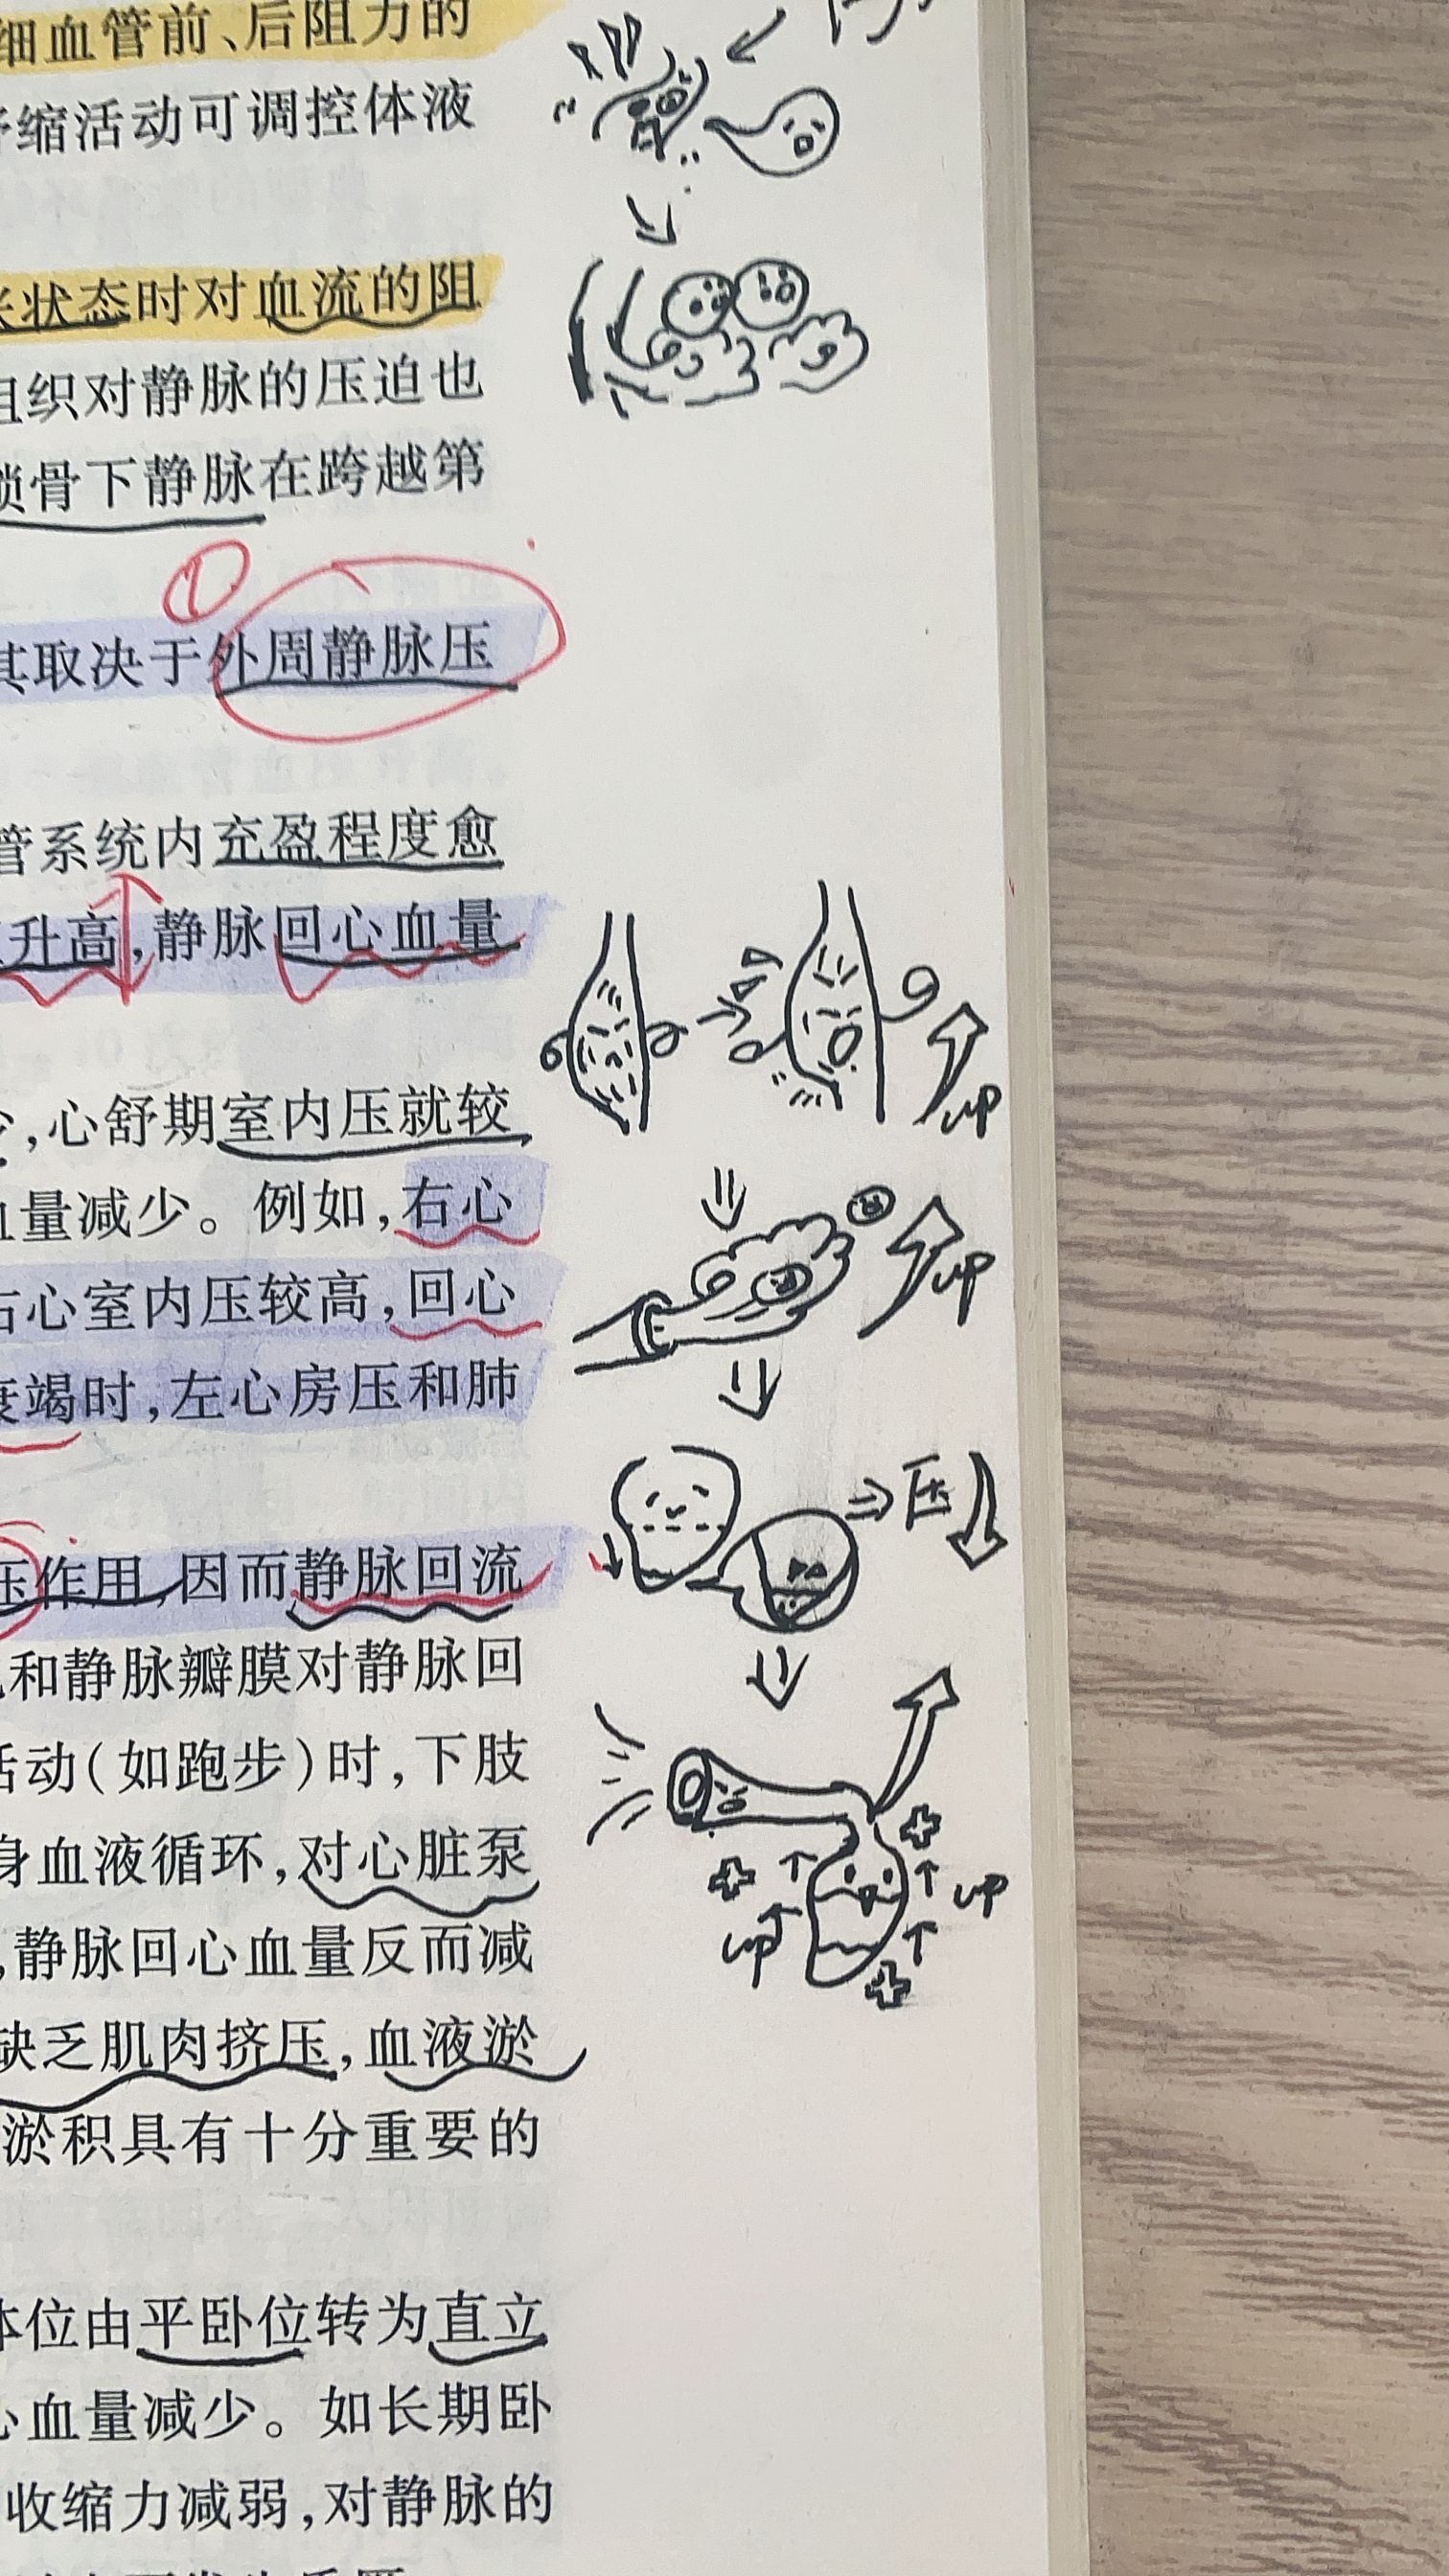 细血管前、后阻力的
缩活动可调控体液
状态时对血流的阻
组织对静脉的压迫也
锁骨下静脉在跨越第
①
其取决于外周静脉压
管系统内充盈程度愈
升高,静脉回心血量
,心舒期室内压就较
up
血量减少。例如,右心
右心室内压较高,回心
up
衰竭时,左心房压和肺
压
压作用,因而静脉回流
和静脉瓣膜对静脉回
活动(如跑步)时,下肢
身血液循环,对心脏泵
up
,静脉回心血量反而减
up
缺乏肌肉挤压,血液淤
淤积具有十分重要的
体位由平卧位转为直立
心血量减少。如长期卧
收缩力减弱,对静脉的